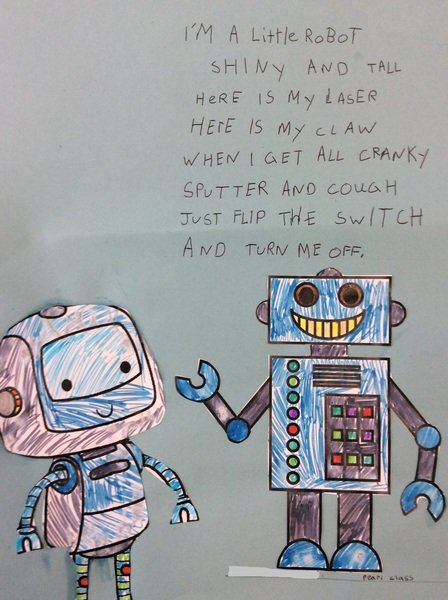 I'M A LittLe RoBoT
SHINY AND TALL
HeRE IS My LASER
HERE IS MY CLAW
WHEN I GET ALL CRANKY
SPUTTER AND COUGH
JUST FLIP THE SWITCH
AND TURN ME OFF.
Pearl class